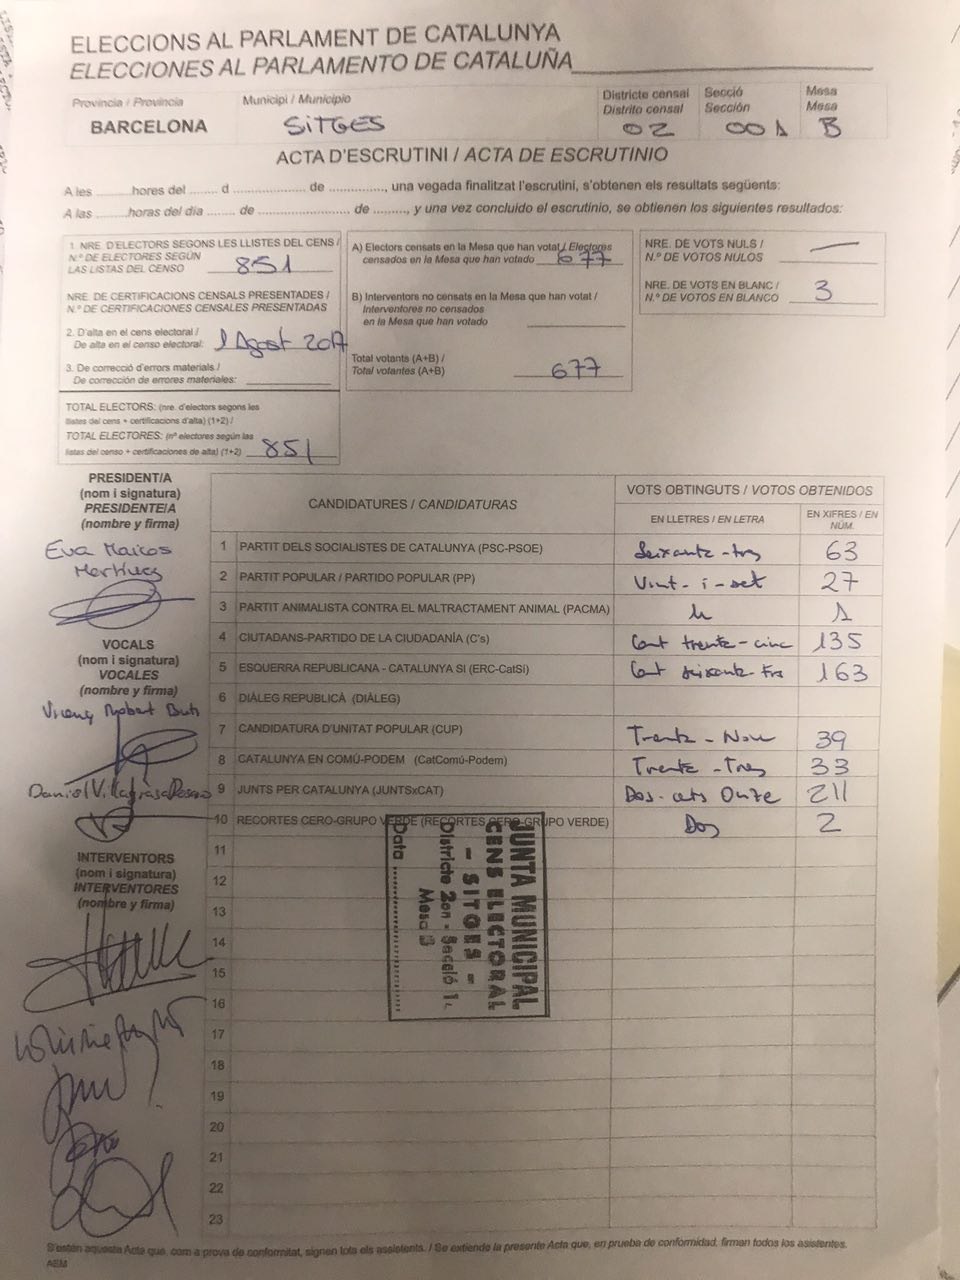 ELECCIONS AL PARLAMENT DE CATALUNYA
ELECCIONES AL PARLAMENTO DE CATALUÑA
Provincia / Provincia
BARCELONA
Municipi / Municipio
SITGES
Districte censal
Distrito censal
02
Secció
Sección
001
Mesa
Mesa
B
ACTA D'ESCRUTINI / ACTA DE ESCRUTINIO
A les ........hores del ....... d .................... de ..............., una vegada finalitzat l'escrutini, s'obtenen els resultats següents:
A las ........horas del día ....... de ......................... de ........, y una vez concluido el escrutinio, se obtienen los siguientes resultados:
1. NRE. D'ELECTORS SEGONS LES LLISTES DEL CENS /
N.º DE ELECTORES SEGÚN
LAS LISTAS DEL CENSO 851
NRE. DE CERTIFICACIONS CENSALS PRESENTADES /
N.º DE CERTIFICACIONES CENSALES PRESENTADAS
2. D'alta en el cens electoral /
De alta en el censo electoral: 1 Agost 2017
3. De correcció d'errors materials /
De corrección de errores materiales:
TOTAL ELECTORS: (nre. d'electors segons les
llistes del cens + certificacions d'alta) (1+2) /
TOTAL ELECTORES: (nº electores según las
listas del censo + certificaciones de alta) (1+2) 851
A) Electors censats en la Mesa que han votat / Electores
censados en la Mesa que han votado 677
B) Interventors no censats en la Mesa que han votat /
Interventores no censados
en la Mesa que han votado
Total votants (A+B) /
Total votantes (A+B) 677
NRE. DE VOTS NULS /
N.º DE VOTOS NULOS —
NRE. DE VOTS EN BLANC /
N.º DE VOTOS EN BLANCO 3
PRESIDENT/A
(nom i signatura)
PRESIDENTE/A
(nombre y firma)
Eva Marcos
Martínez
VOCALS
(nom i signatura)
VOCALES
(nombre y firma)
Robert
Daniel
INTERVENTORS
(nom i signatura)
INTERVENTORES
(nombre y firma)
CANDIDATURES / CANDIDATURAS
VOTS OBTINGUTS / VOTOS OBTENIDOS
EN LLETRES / EN LETRA
EN XIFRES / EN
NÚM.
1 PARTIT DELS SOCIALISTES DE CATALUNYA (PSC-PSOE) Seixanta-tres 63
2 PARTIT POPULAR / PARTIDO POPULAR (PP) Vint-i-set 27
3 PARTIT ANIMALISTA CONTRA EL MALTRACTAMENT ANIMAL (PACMA) Un 1
4 CIUTADANS-PARTIDO DE LA CIUDADANÍA (C's) Cent trenta-cinc 135
5 ESQUERRA REPUBLICANA - CATALUNYA SI (ERC-CatSí) Cent seixanta-tres 163
6 DIÀLEG REPUBLICÀ (DIÀLEG)
7 CANDIDATURA D'UNITAT POPULAR (CUP) Trenta-Nou 39
8 CATALUNYA EN COMÚ-PODEM (CatComú-Podem) Trenta-Tres 33
9 JUNTS PER CATALUNYA (JUNTSxCAT) Dos-cents Onze 211
10 RECORTES CERO-GRUPO VERDE (RECORTES CERO-GRUPO VERDE) Dos 2
11
12
13
14
15
16
17
18
19
20
21
22
23
JUNTA MUNICIPAL
CENS ELECTORAL
- SITGES -
Districte 2on - Secció 1a
Mesa B
Data ...............
S'estén aquesta Acta que, com a prova de conformitat, signen tots els assistents. / Se extiende la presente Acta que, en prueba de conformidad, firman todos los asistentes.
AEM